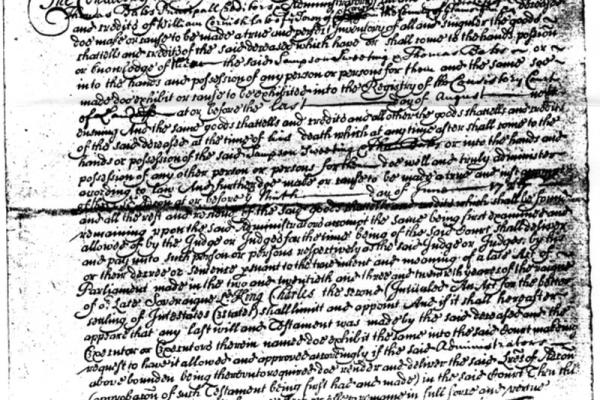 Thomas Baker Principall Creditors Administrators
and Creditts of William Cornish late of in the County of deceased
doe make or cause to be made a true and perfect Inventory of all and singular the goods
chattells and Creditts of the said deceased which have or shall come to the hands possession
or knowledge of the said Sampson Sweeting & Thomas Baker or
into the hands and possession of any person or persons for them and the same soe
made doe exhibit or cause to be exhibited into the Registry of the Consistory Court
of at or before the last day of August next
ensueing And the same goods chattells and creditts and all other the goods chattells and creditts
of the said deceased at the time of his death which at any time after shall come to the
hands or possession of the said Sampson Sweeting & Thomas Baker or into the hands and
possession of any other person or persons for doe well and truly administer
according to law And further doe make or cause to be made a true and just
at or before y day of June
and all the rest and residue of the said goods chattells and creditts which shall be found
remaining upon the said Administrators accompt the same being first examined and
allowed of by the Judge or Judges for the time being of the said Court shall deliver
and pay unto such person or persons respectively as the said Judge or Judges by his
or their decree or sentence persuant to the true intent and meaning of a late Act of
Parliament made in the two and twentieth and three and twentieth yeares of the raigne
of or Late Soveraigne Ld King Charles the second (Intituled An Act for the better
setling of Intestates Estates) shall limitt and appoint And if it shall hereafter
appeare that any last will and Testament was made by the said deceased and the
Executor or Executors therein named doe exhibit the same into the said Court makeing
request to have it allowed and approved accordingly if the said Administrators
above bounden being thereunto required doe render and deliver the said Lres of Admon
(approbacon of such Testament being first had and made) in the said Court Then this
or else to remaine in full force and vertue